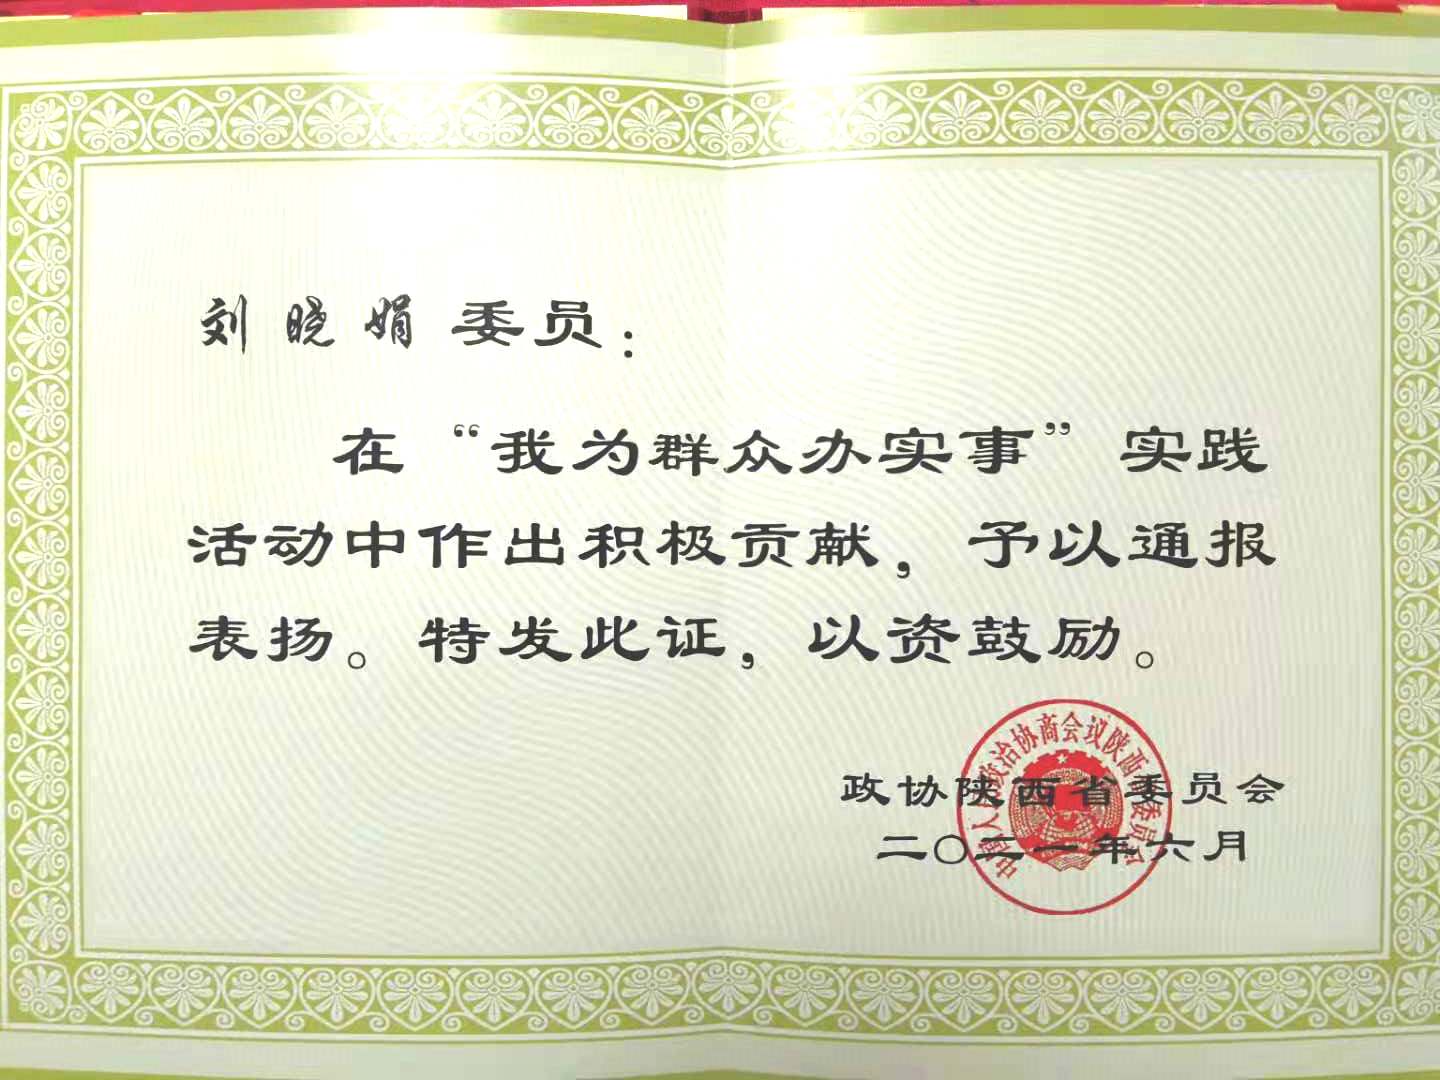 刘晓娟委员：
在“我为群众办实事”实践
活动中作出积极贡献，予以通报
表扬。特发此证，以资鼓励。
中国人民政治协商会议陕西省委员会
政协陕西省委员会
二〇二一年六月